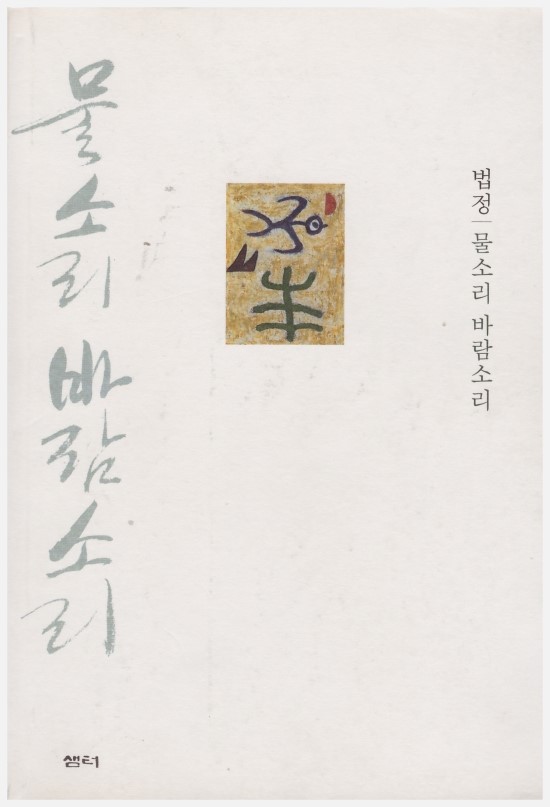 물소리 바람소리
법정 | 물소리 바람소리
샘터